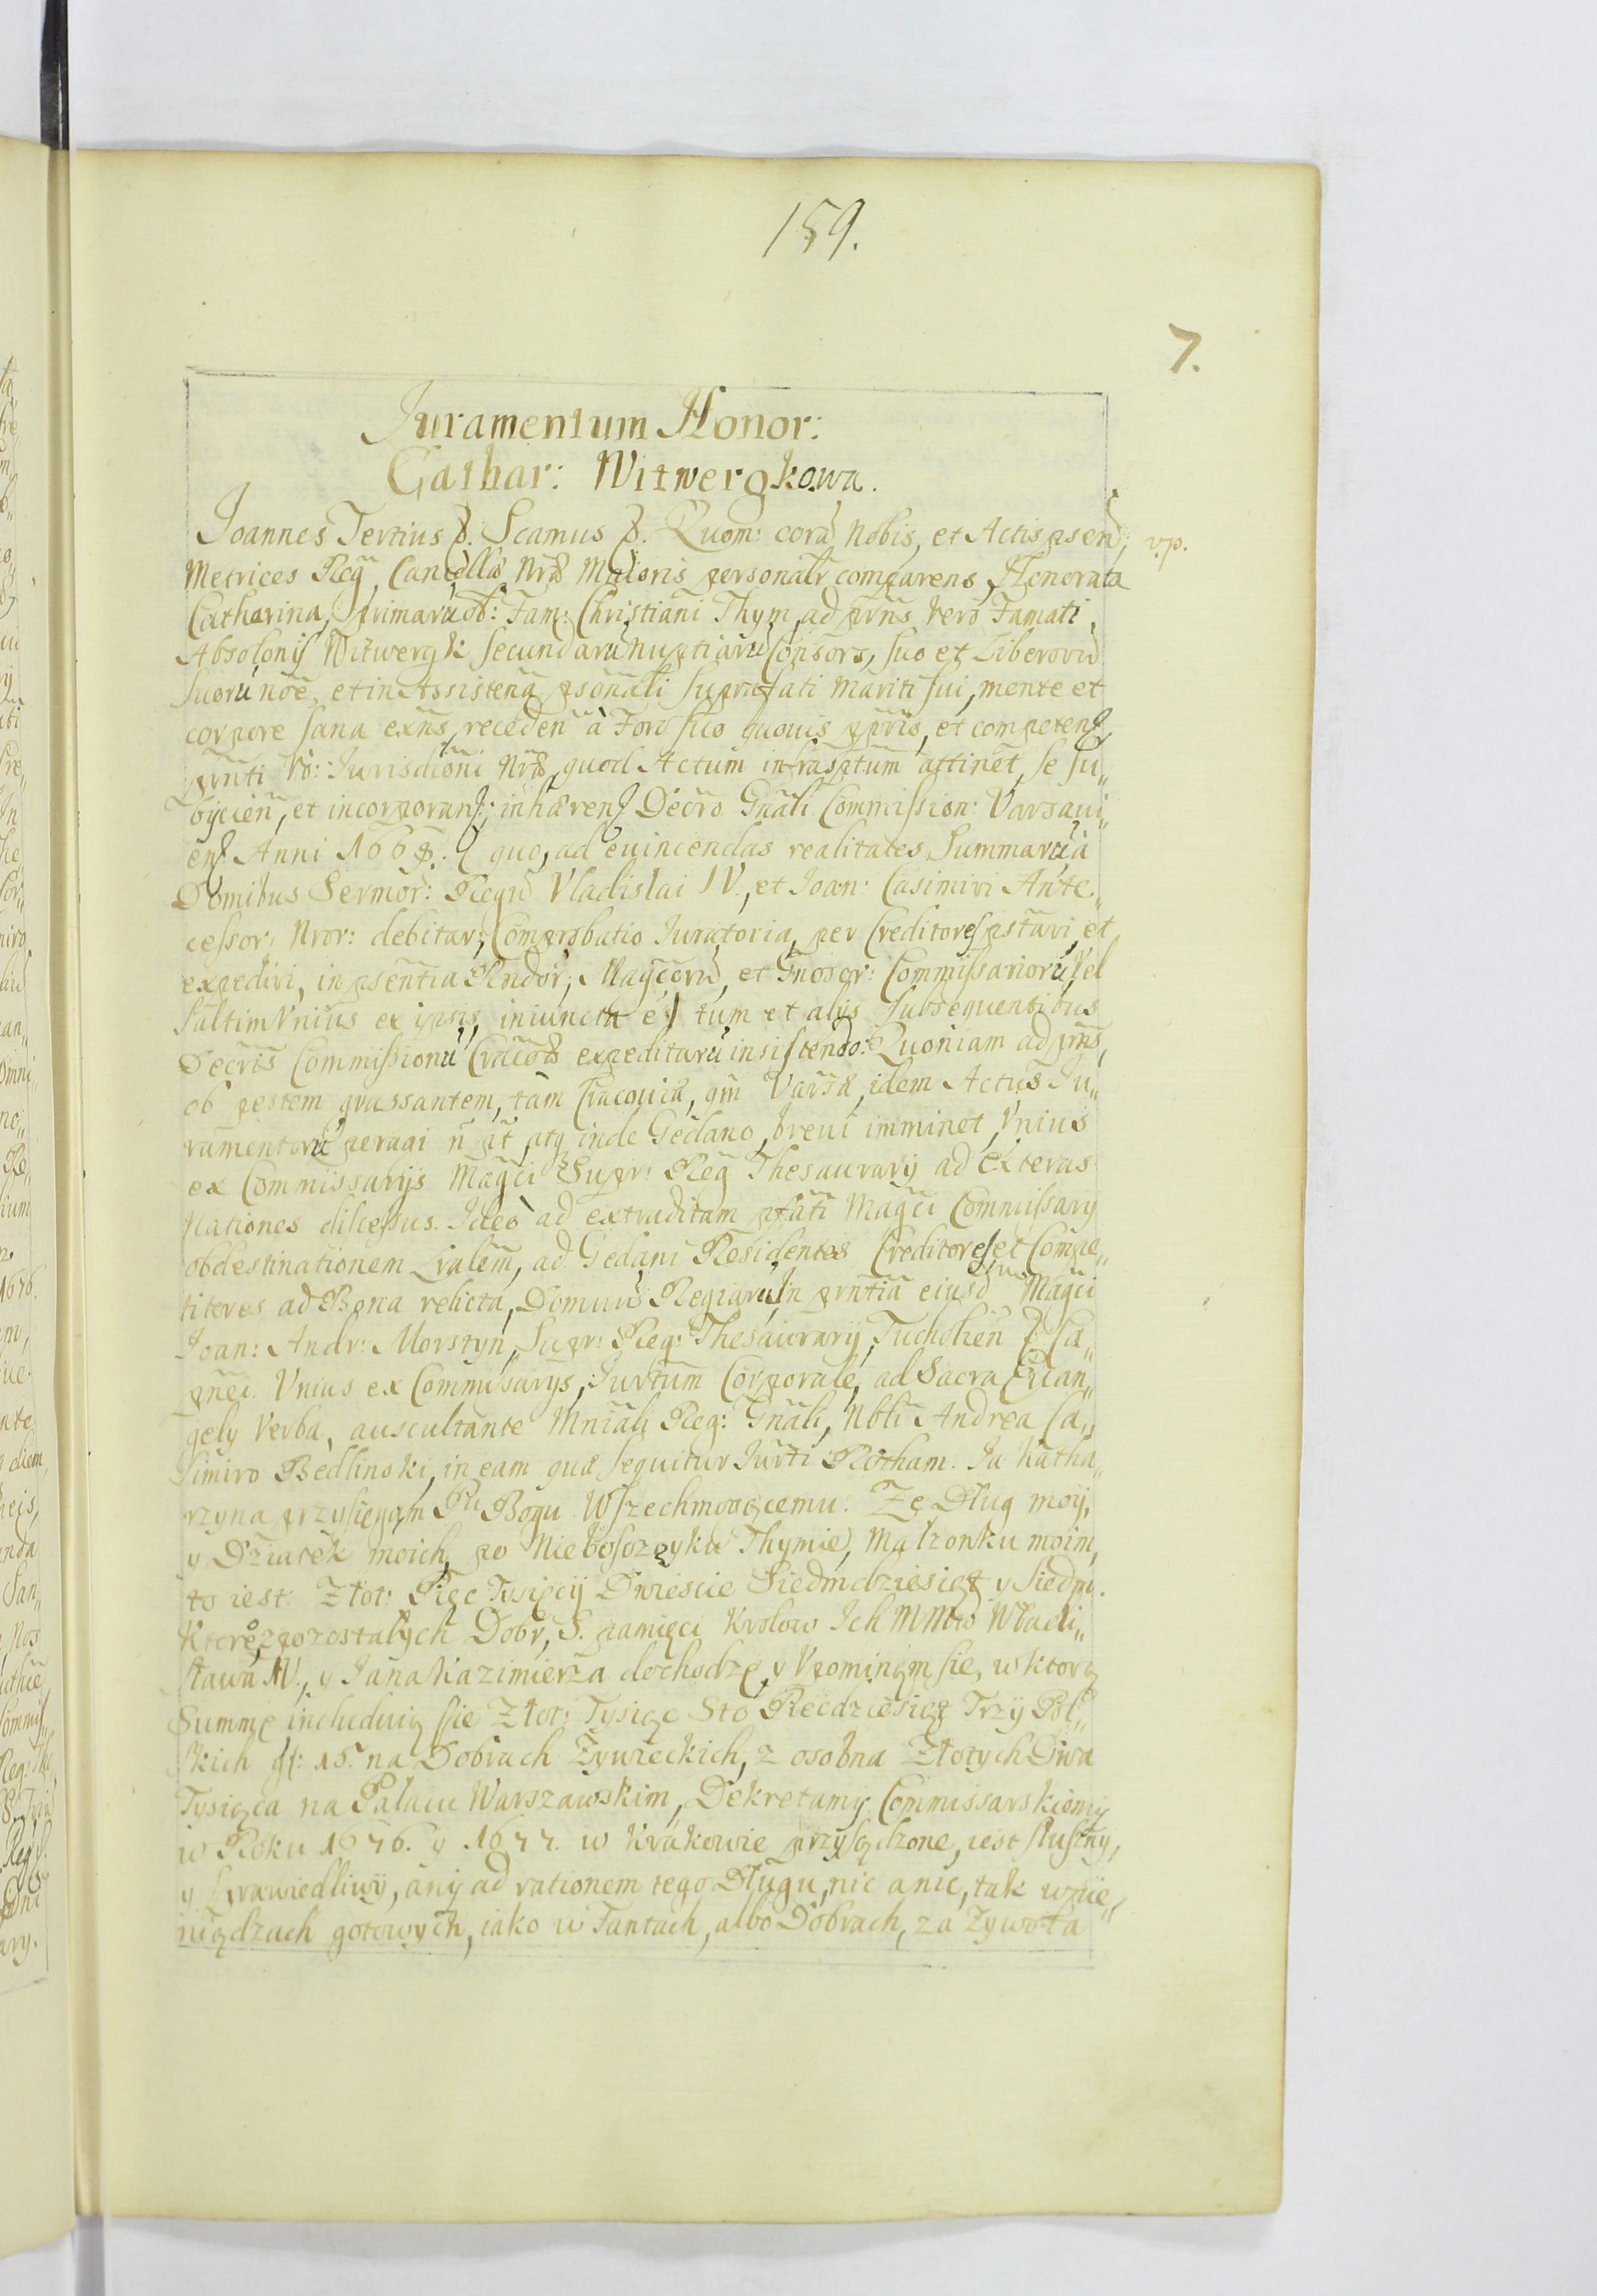 159.
7.
Juramentum Honor:
Cathar: Witwergkowa.
Joannes Tertius &. Scamus &. Quom: corã Nobis, et Actis psen; v.p.
Metrices Regñ, Cancellæ Nræ Maioris personalr comparens, Honorata
Catharina, primaru ob: Fam: Christiani Thym, ad prns vero Famati
Absolonis Witwergk secundarũ nuptiarũ Consors, suo et Liberorũ
suorũ nõe, et in Assistenã psonali supra fati Mariti sui, mente et
corpore sana exñs, receden à Foro suo quovis ppris, et competen,
prñti vo: Jurisdioni Nræ, quod Actum infrasptum attinet, se su„
bycien, et incorporan; inhæren Decro Gñali Commission: Varsavi„
en Anni 1668. quo, ad evincendas realitates, Summarũ à
Domibus Sermor: Regũ Vladislai IV., et Joan: Casimiri Ante„
cessor: Nror: debitar: Comprobatio Iuratoria, per Creditores pstari, et
expediri, in psentia Rndor; Magcorũ, et Gnosor: Commissariorũ, Vel
saltim Unius ex ipsis, iniuncta e tum et alys subsequentibus
Decris Commissionũ Craco expeditarũ insistendo: Quoniam ad prñs,
ob pestem grassantem, tam Cracoviæ, qm Varsæ, idem Actus Ju„
ramentorũ peragi ñ pt, atq inde Gedano, brevi imminet, Unius
ex Commissarys Magci Supr: Reg Thesaurarij ad exteras
Nationes discessus. Ideo ad extraditam pfati Magci Commissary
obdestinationem Lralem, ad Gedani Residentes Creditores, et Compe„
titores ad Bona relicta, Domuũ Regiarũ, In prntia eiusd Magci
Joan: Andr: Morstyn, Supr: Reg: Thesaurarij, Tucholien Ca„
pnei. Unius ex Commisarys, Jurtum Corporale, ad Sacra Evan„
gely Verba, auscultante Mniali Reg: Gñali, Nbli Andrea Ca„
simiro Bedlinski, in eam quæ sequitur Jurti Rotham. Ja Katha„
rzyna przysięgam Pu Bogu Wszechmogącemu. Że Dług moij,
y Dziatek moich, po Nieboszczyku Thymie, Małzonku moim,
to iest Złot: Pięc Tysięcij Dwieście Siedmdziesiąt y siedm.
Które, z pozostałych Dobr, S. pamięci Krolow Ich MMciò Władi„
sława IV., y Jana Kazimierza dochodzę, y Upominam sie, w ktorą
Summę includuią sie Złot: Tysiąc Sto Pięcdziesiąt Trzy Pol„
skich gr: 15. na Dobrach Żywieckich, z osobna Złotych Dwa
Tysiąca na Pałacu Warszawskim, Dekretamij Commissarskiemij
w Roku 1676. y 1677. w Krakowie przysądzone, iest słuszny,
y sprawiedliwij, anij ad rationem tego Długu, nic a nic, tak w pie„
niądzach gotowych, iako w Fantach, albo Dobrach, za Żywota